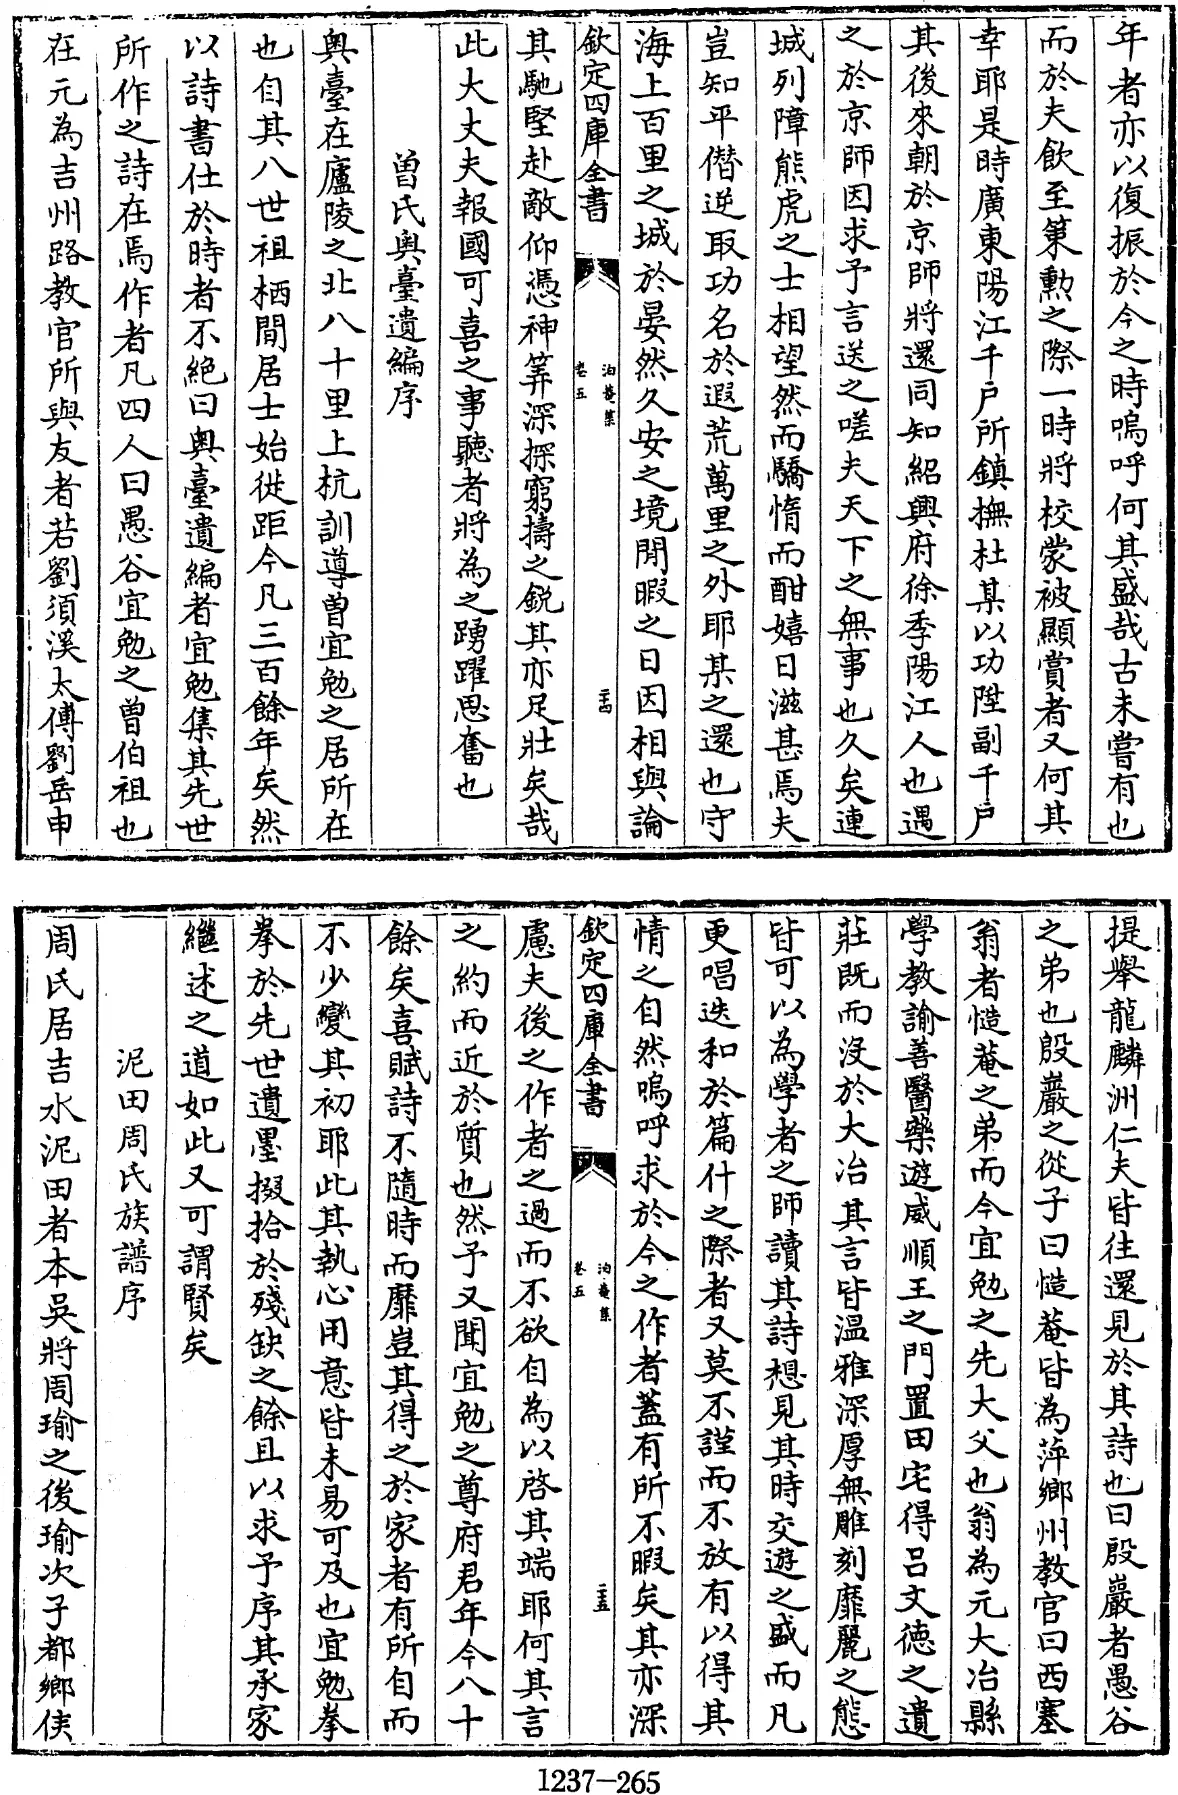 年者亦以復振於今之時嗚呼何其盛哉古未嘗有也
而於夫飲至策勲之際一時將校蒙被顯賞者又何其
幸耶是時廣東陽江千户所鎮撫杜某以功陞副千户
其後來朝於京師將還同知紹興府徐季陽江人也遇
之於京師因求予言送之嗟夫天下之無事也久矣連
城列障熊虎之士相望然而驕惰而酣嬉日滋甚焉夫
豈知平僭逆取功名於遐荒萬里之外耶某之還也守
海上百里之城於晏然久安之境閒暇之日因相與論
欽定四庫全書
泊菴集
卷五
二十四
其馳堅赴敵仰憑神筭深探窮擣之鋭其亦足壯矣哉
此大丈夫報國可喜之事聽者將為之踴躍思奮也
曽氏奥臺遺編序
奥臺在廬陵之北八十里上杭訓導曽宜勉之居所在
也自其八世祖栖間居士始徙距今凡三百餘年矣然
以詩書仕於時者不絶曰奥臺遺編者宜勉集其先世
所作之詩在焉作者凡四人曰愚谷宜勉之曽伯祖也
在元為吉州路教官所與友者若劉須溪太傅劉岳申
提舉龍麟洲仁夫皆往還見於其詩也曰殷巖者愚谷
之弟也殷巖之從子曰慥菴皆為萍鄉州教官曰西塞
翁者慥菴之弟而今宜勉之先大父也翁為元大冶縣
學教諭善醫藥遊威順王之門置田宅得吕文德之遺
莊既而没於大冶其言皆温雅深厚無雕刻靡麗之態
皆可以為學者之師讀其詩想見其時交遊之盛而凡
更唱迭和於篇什之際者又莫不謹而不放有以得其
情之自然嗚呼求於今之作者蓋有所不暇矣其亦深
欽定四庫全書
泊菴集
卷五
二十五
慮夫後之作者之過而不欲自為以啓其端耶何其言
之約而近於質也然予又聞宜勉之尊府君年今八十
餘矣喜賦詩不隨時而靡豈其得之於家者有所自而
不少變其初耶此其執心用意皆未易可及也宜勉拳
拳於先世遺墨掇拾於殘缺之餘且以求予序其承家
繼述之道如此又可謂賢矣
泥田周氏族譜序
周氏居吉水泥田者本吳將周瑜之後瑜次子都鄉侯
1237-265